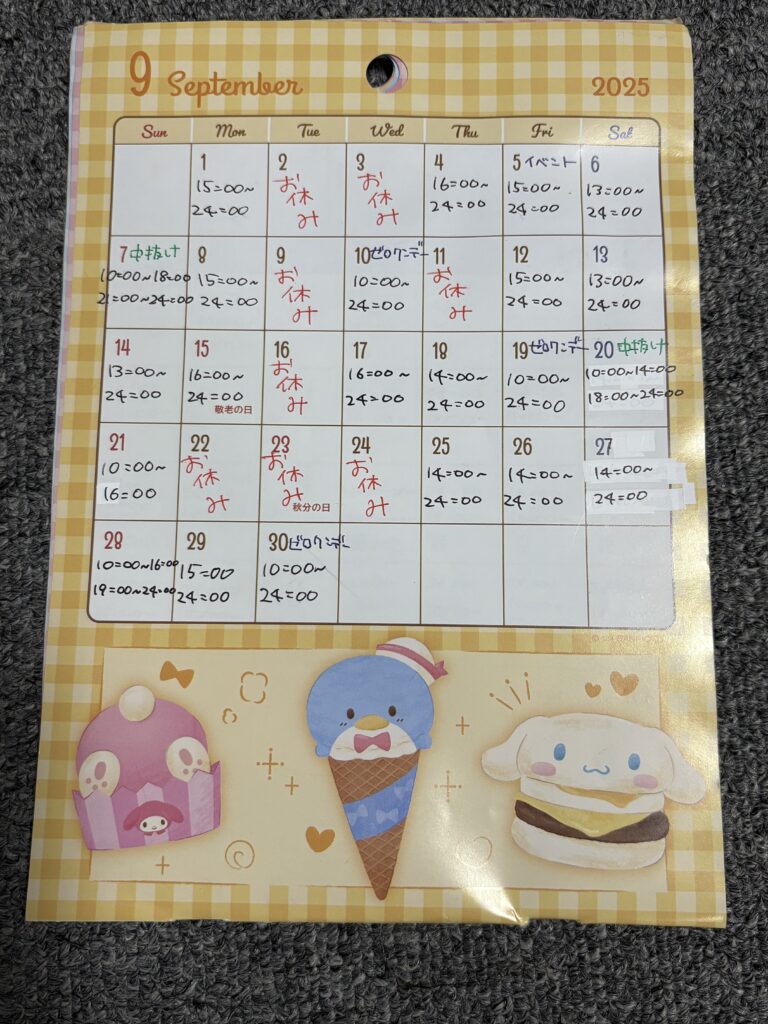 9 September 2025
Sun Mon Tue Wed Thu Fri Sat
1
15=00~
24=00
2
お休み
3
お休み
4
16=00~
24=00
5 イベント
15=00~
24=00
6
13=00~
24=00
7 中抜け
10=00~18=00
21=00~24=00
8
15=00~
24=00
9
お休み
10 ゼロワンデー
10=00~
24=00
11
お休み
12
15=00~
24=00
13
13=00~
24=00
14
13=00~
24=00
15
16=00~
24=00
敬老の日
16
お休み
17
16=00~
24=00
18
14=00~
24=00
19 ゼロワンデー
10=00~
24=00
20 中抜け
10=00~14=00
18=00~24=00
21
10=00~
16=00
22
お休み
23
お休み
秋分の日
24
お休み
25
14=00~
24=00
26
14=00~
24=00
27
14=00~
24=00
28
10=00~16=00
19=00~24=00
29
15=00
24=00
30 ゼロワンデー
10=00~
24=00